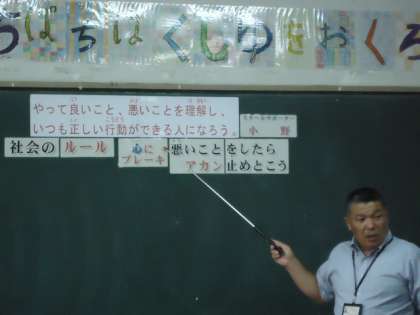 っぱちはくしゅをおくろ
やって良いこと、悪いことを理解し、
いつも正しい行動ができる人になろう。
スクールサポーター
小野
社会の ルール
心に
ブレーキ
悪いことをしたら
アカン 止めとこう